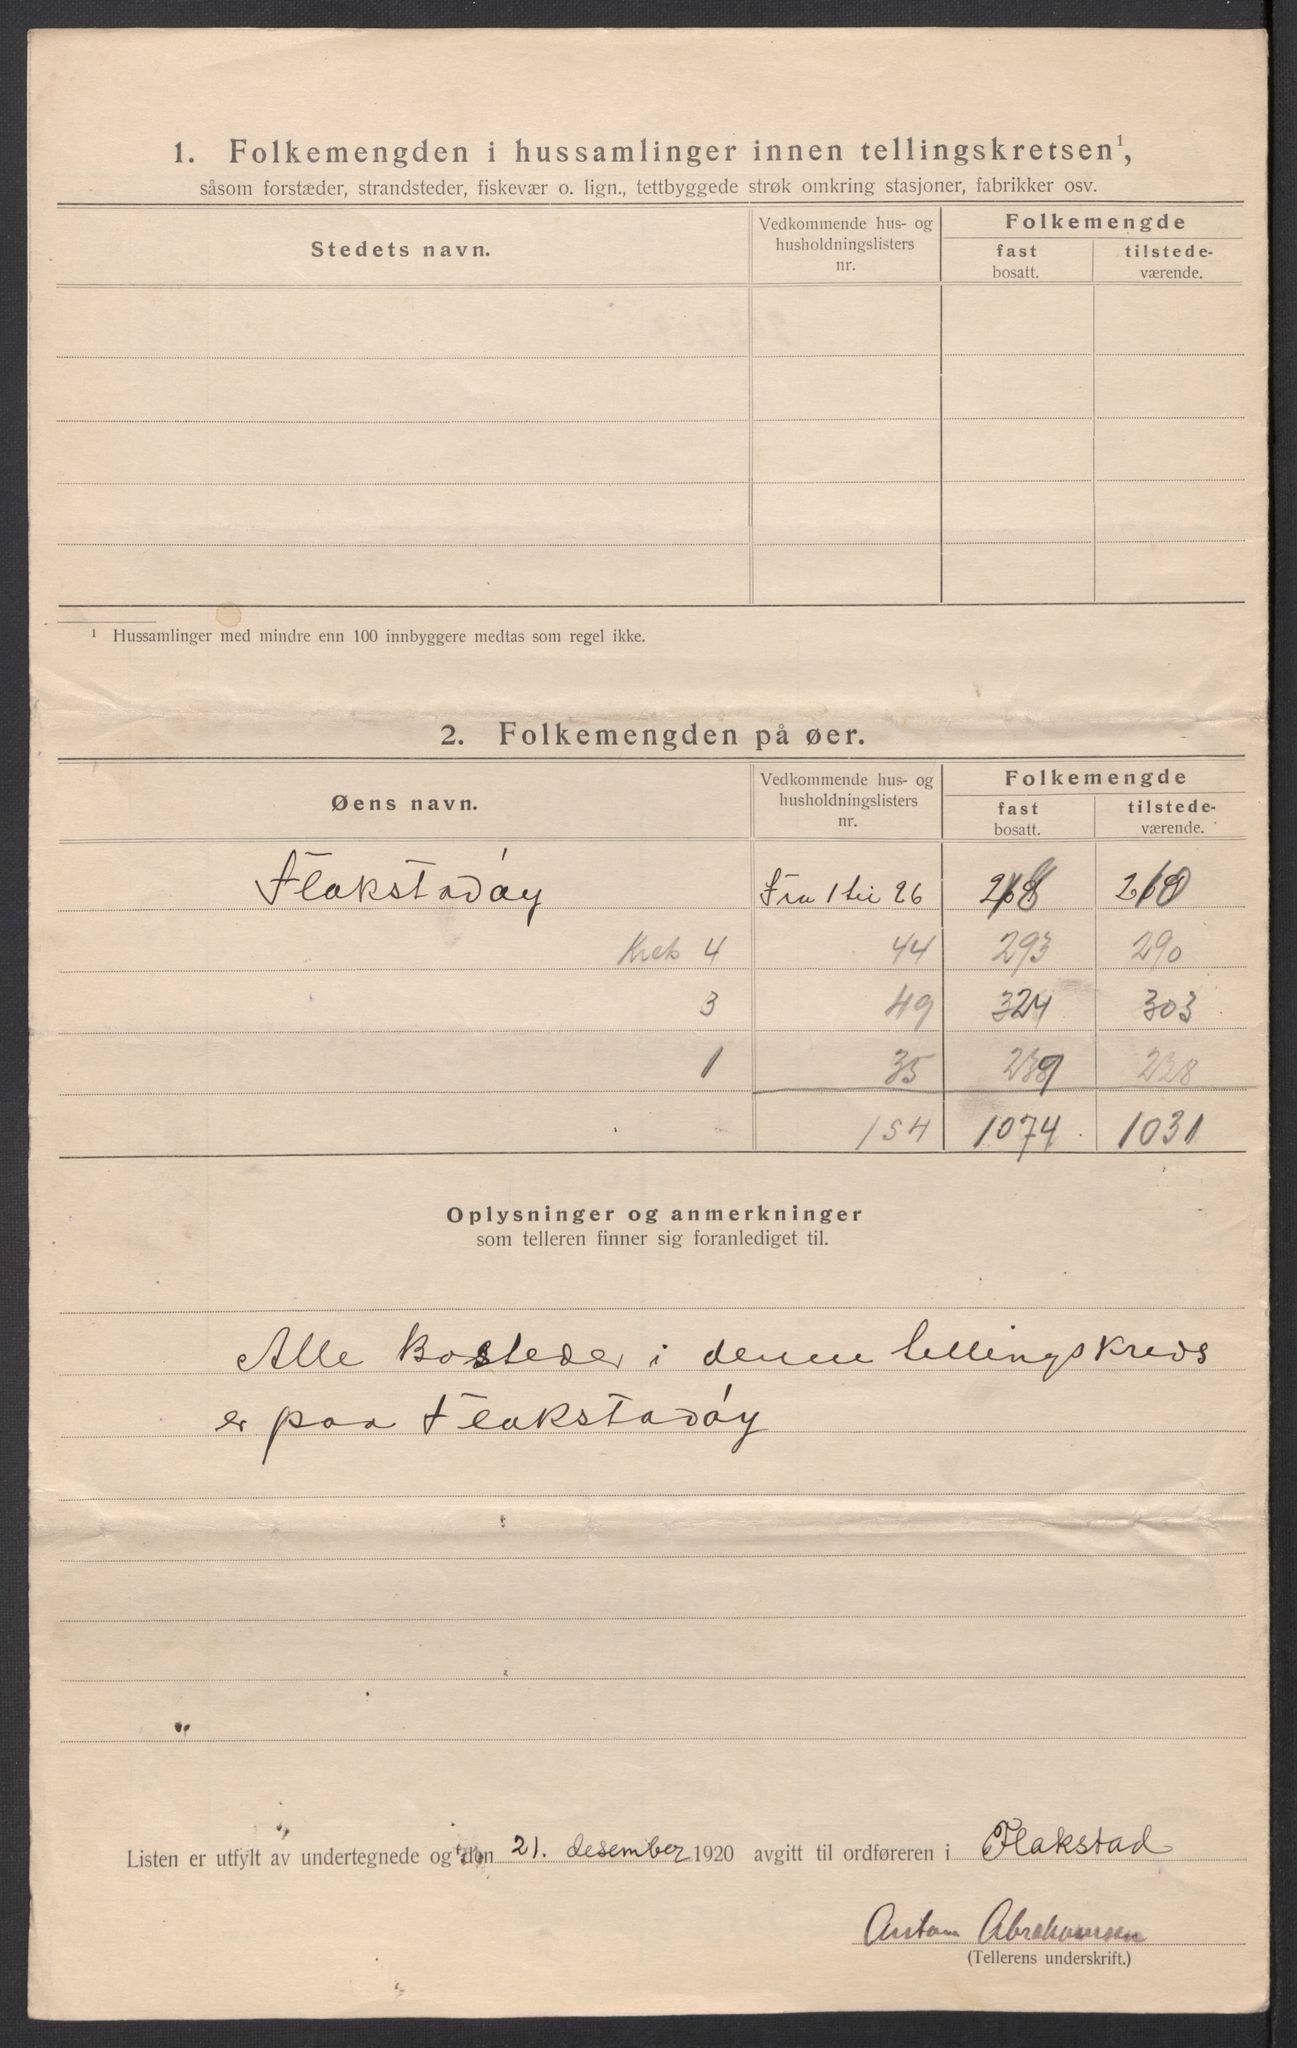 1. Folkemengden i hussamlinger innen tellingskretsen¹,
såsom forstæder, strandsteder, fiskevær o. lign., tettbyggede strøk omkring stasjoner, fabrikker osv.
Stedets navn.
Vedkommende hus- og
husholdningslisters
nr.
Folkemengde
fast
bosatt.
tilstede-
værende.
¹ Hussamlinger med mindre enn 100 innbyggere medtas som regel ikke.
2. Folkemengden på øer.
Øens navn.
Vedkommende hus- og
husholdningslisters
nr.
Folkemengde
fast
bosatt.
tilstede-
værende.
Flakstadøy Fra 1 til 26 218 210
Krets 4 44 293 290
3 49 324 303
1 35 239 228
154 1074 1031
Oplysninger og anmerkninger
som telleren finner sig foranlediget til.
Alle Bosteder i denne tellingskreds
er paa Flakstadøy
Listen er utfylt av undertegnede og den 21. desember 1920 avgitt til ordføreren i Flakstad
Anton Abrahamsen
(Tellerens underskrift.)